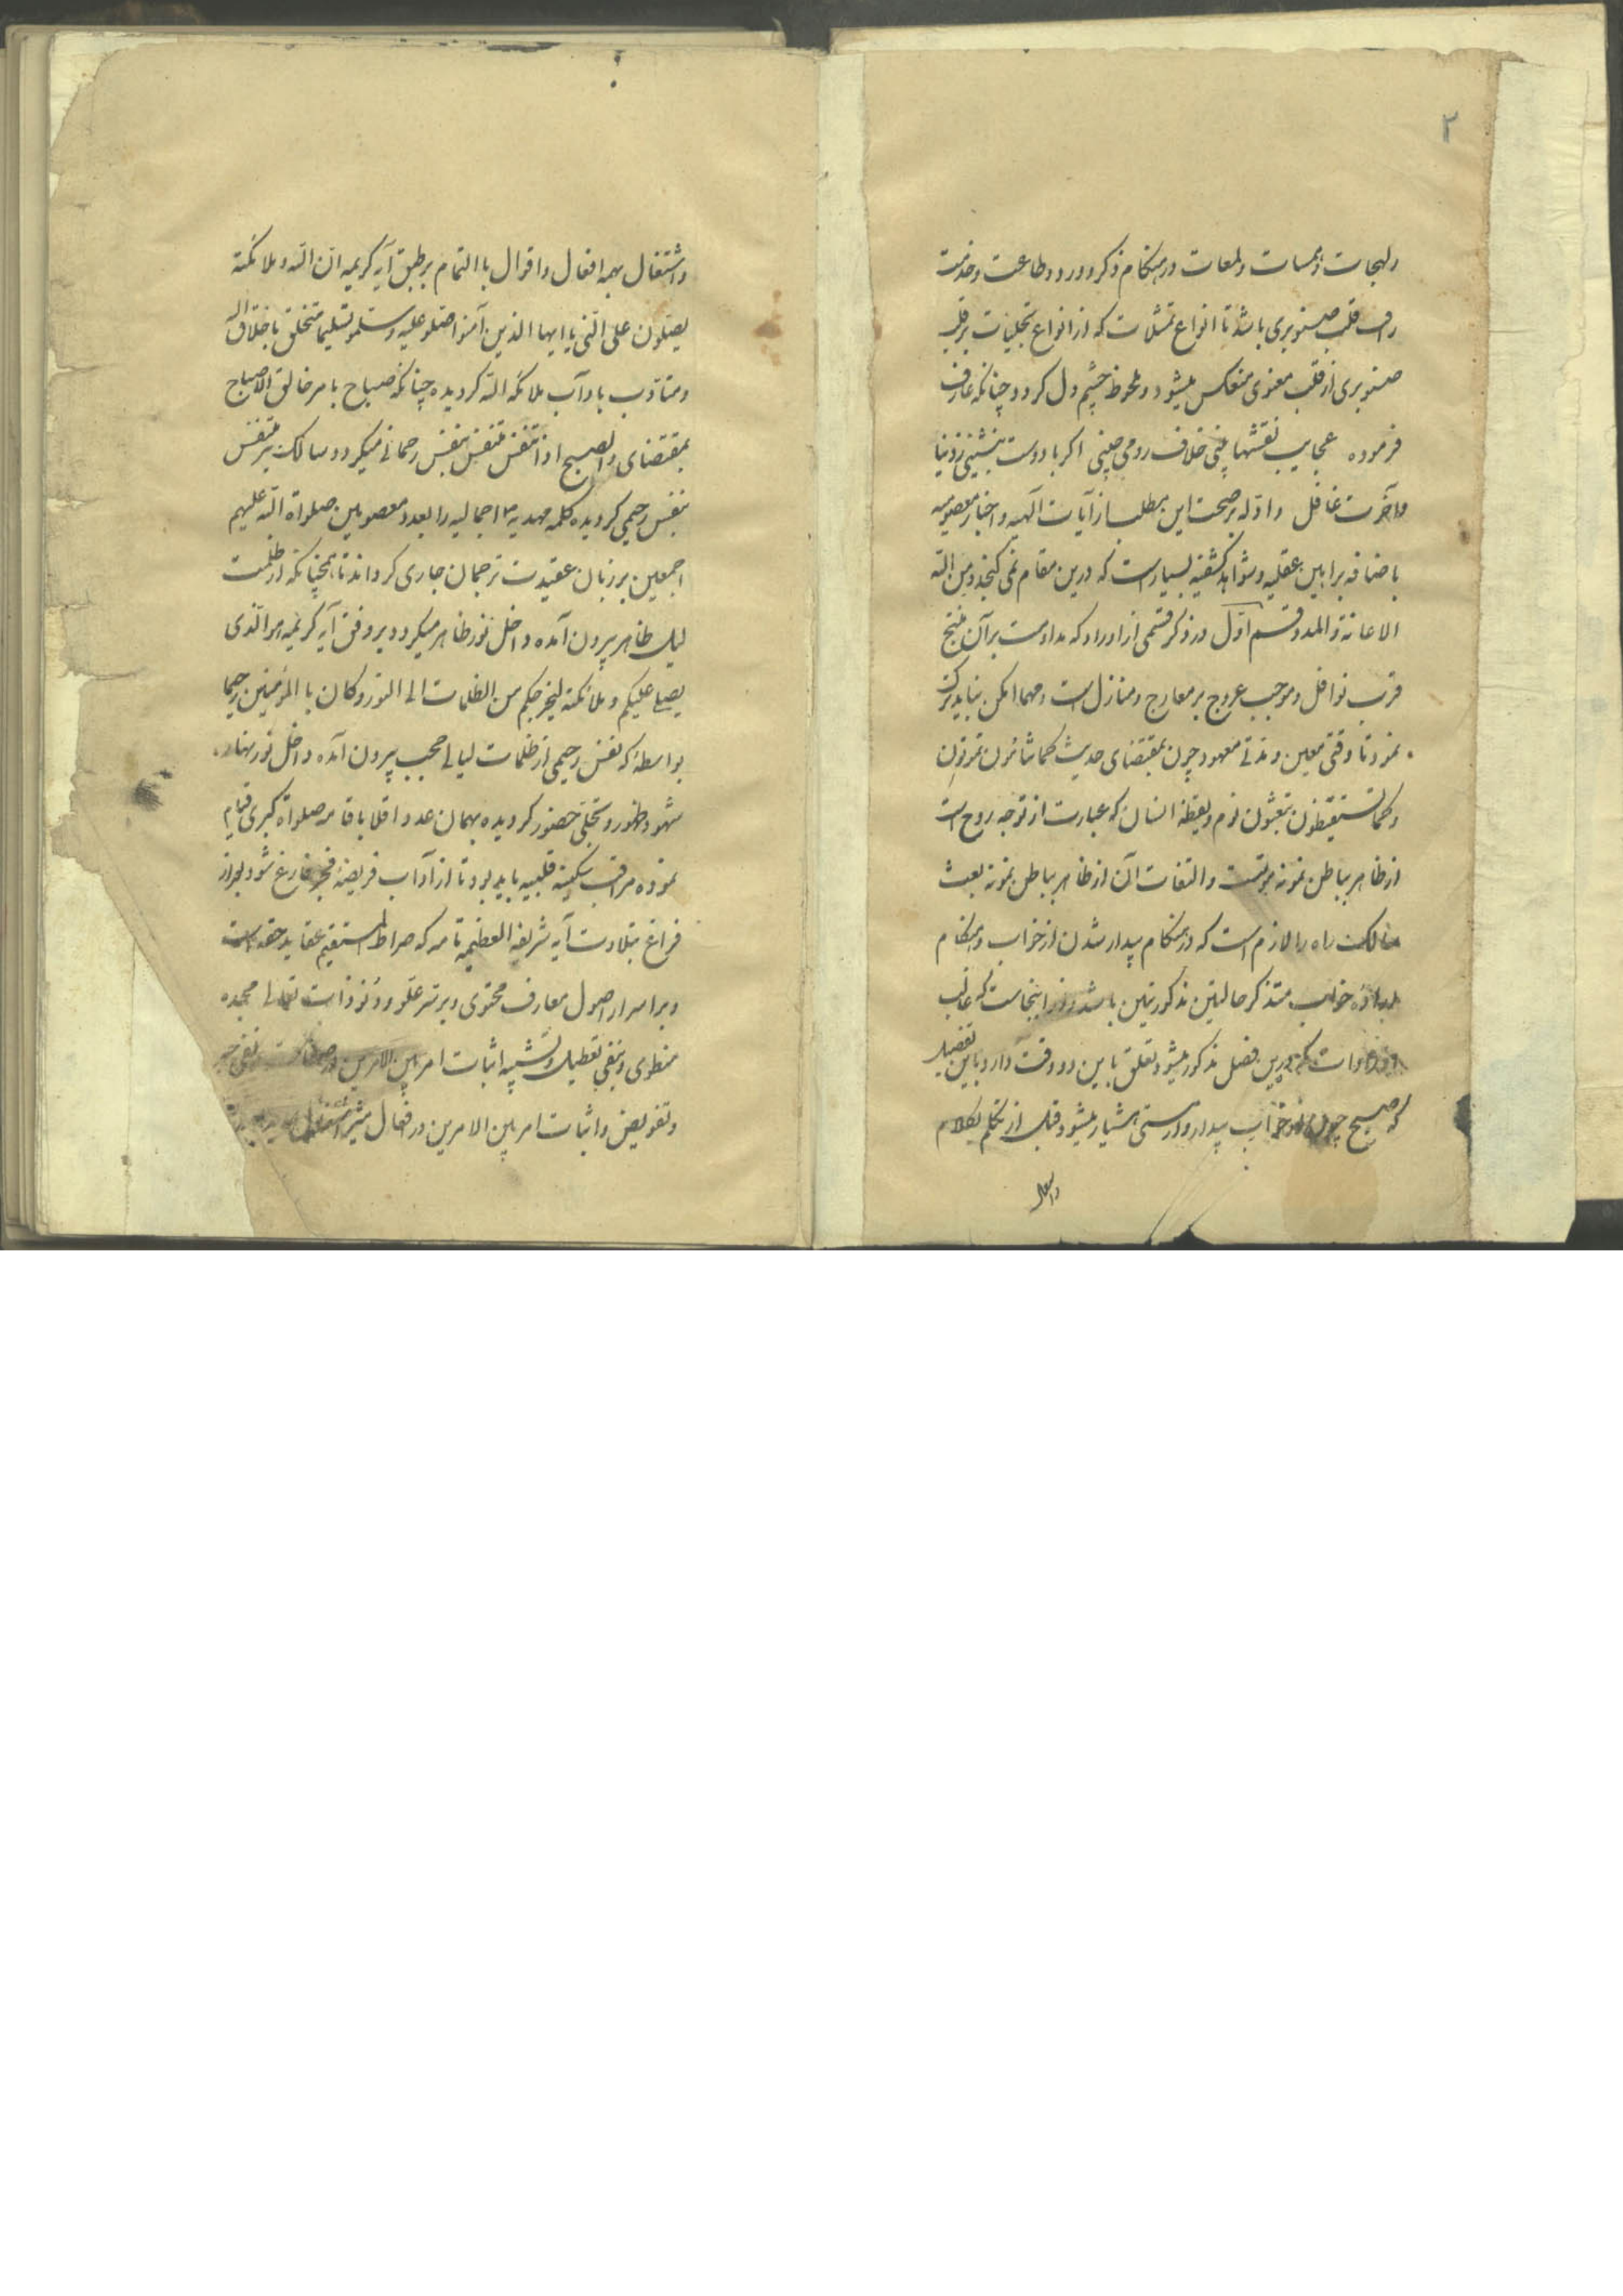 ۲
ولهجات و همسات و لمعات در هنکام ذکر و ورد و طاعت و خدمت
قلب صنوبری باشد تا انواع تمثلات که از انواع تجلیات بر قلب
صنوبری از قلب معنوی منعکس میشود و ملحوظ چشم دل کردد چنانکه عارف
فرموده عجایب نقشها بینی خلاف رومی چینی اکر با دوست بنشینی ز دنیا
وآخرت غافل وادله بر صحت این مطلب از آیات الهیه و اخبار معصومیه
باضافه براهین عقلیه و شواهد کشفیه بسیار است که درین مقام نمی کنجد و من الله
الاعانة والمدد قسم اول در ذکر قسمی از اوراد که مداومت بر آن منتج
قرب نوافل و موجب عروج بر معارج و منازل است و مهما امکن نباید ترک
نمود تا وقتی معین و مدتی معهود چون بمقتضای حدیث کما تنامون تموتون
وکما تستیقظون تبعثون نوم و یقظه انسان که عبارت از توجه روح است
از ظاهر بباطن نمونه موتست و التفات آن از ظاهر بباطن نمونه بعث
سالک راه را لازم است که در هنکام بیدار شدن از خواب و هنکام
اراده خواب متذکر حالتین مذکورتین باشد و از اینجاست که غالب
که درین فصل مذکور میشود تعلق باین دو وقت دارد باین تفصیل
که صبح چون از خواب بیدار و از مستی هشیار میشود قبل از تکلم بکلام
واشتغال
واشتغال بهمه افعال واقوال با التمام بر طبق آیه کریمه ان الله و ملائکته
یصلون علی النبی یا ایها الذین آمنوا صلو علیه وسلمو تسلیما متخلق باخلاق الله
ومتادب بادآب ملائکه الله کردیده چنانکه صباح بامر خالق الاصباح
بمقتضای والصبح اذا تنفس متنفس بنفس رحمانی میکردد سالک نیز متنفس
بنفس رحیمی کردیده کلمه مهدیه اجمالیه را بعدد معصومین صلواة الله علیهم
اجمعین بر زبان عقیدت ترجمان جاری کرداند تا همچنانکه از ظلمت
لیل ظاهر بیرون آمده داخل نور ظاهر میکردد بر وفق آیه کریمه هو الذی
یصلی علیکم و ملائکته لیخرجکم من الظلمات الی النور وکان بالمؤمنین رحیما
بواسطه که نفس رحیمی از ظلمات لیالی حجب بیرون آمده داخل نور نهار
شهود و ظهور و تجلی حضور کردیده بهمان عدد اقلا باقامه صلواة کبری قیام
نموده مراقب سکینه قلبیه باید بود تا از آداب فریضه فجر فارغ شود بعد از
فراغ بتلاوت آیه شریفه العظیمه تامه که صراط المستقیم عقاید حقه است
وبر اسرار اصول معارف محتوی و بر سر علو و دنو ذات تعالی مجده
منطوی و بنفی تعطیل و تشبیه اثبات امر بین الامرین در صفات و نفی جبر
وتفویض و اثبات امر بین الامرین در افعال